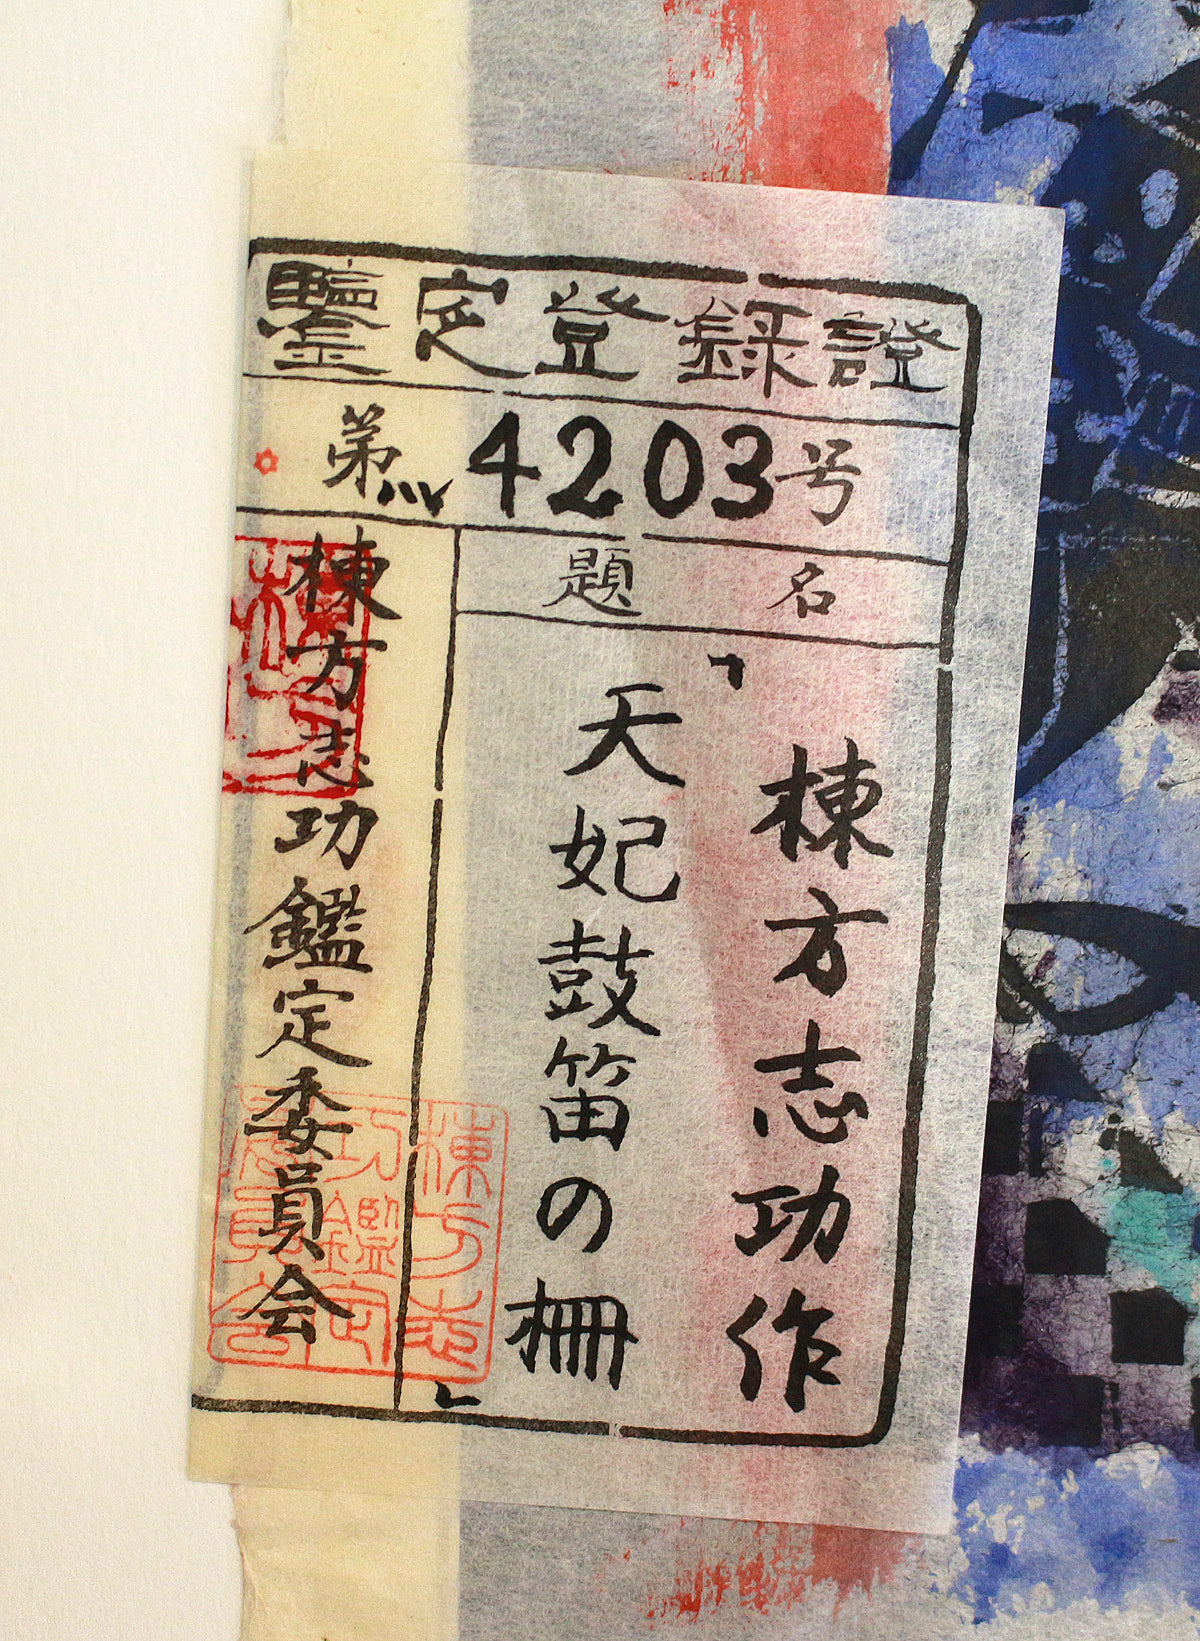 鑒定登録證
第4203号
題名
「棟方志功作
天妃鼓笛の柵」
棟方志功鑑定委員会
棟方志
功鑑定
委員会